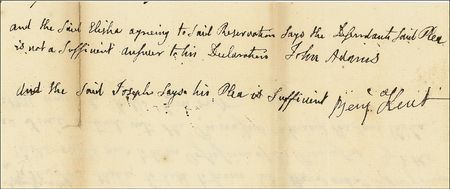 and the Said Elisha agreeing to Said Reservation Says the Defendants Said Plea
is not a Sufficient answer to his Declaration John Adams
And the Said Joseph Says his Plea is Sufficient Benj Kent